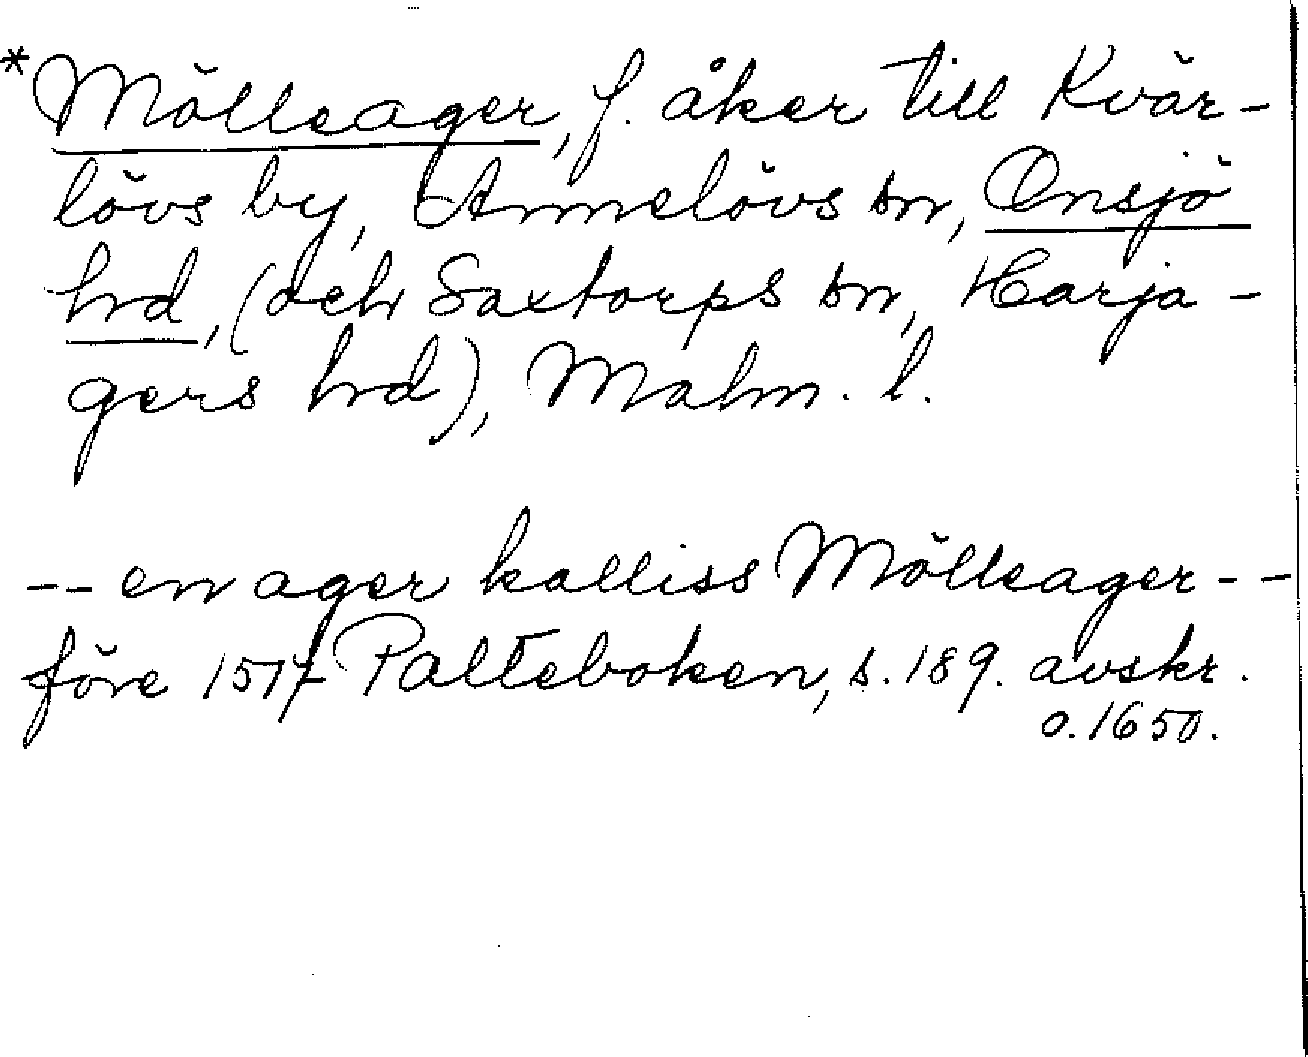 *Mölleager, f. åker till Kvär-
lövs by, Annelövs sn, Onsjö
hrd, (och Saxtorps sn, Harja-
gers hrd), Malm. l.
-- en ager kalliss Mölleager --
före 1517 Palteboken, s. 189. avskr.
o. 1650.